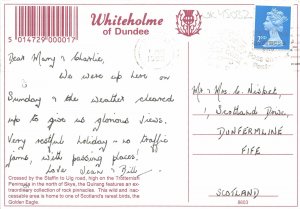 Whiteholme
of Dundee
5014729000017
Dear Mary & Charlie,
We were up here on
Sunday & the weather cleared
up to give us glorious views.
Very restful holiday - no traffic
jams, with passing places.
Love, Jean & Bill.
Crossed by the Staffin to Uig road, high on the Trotternish
Peninsula in the north of Skye, the Quiraing features an ex-
traordinary collection of rock pinnacles. This wild and inac-
cessible area is home to one of Scotland's rarest birds, the
Golden Eagle.
Mr & Mrs C. Nisbet,
Scotland Drive,
DUNFERMLINE
FIFE
SCOTLAND